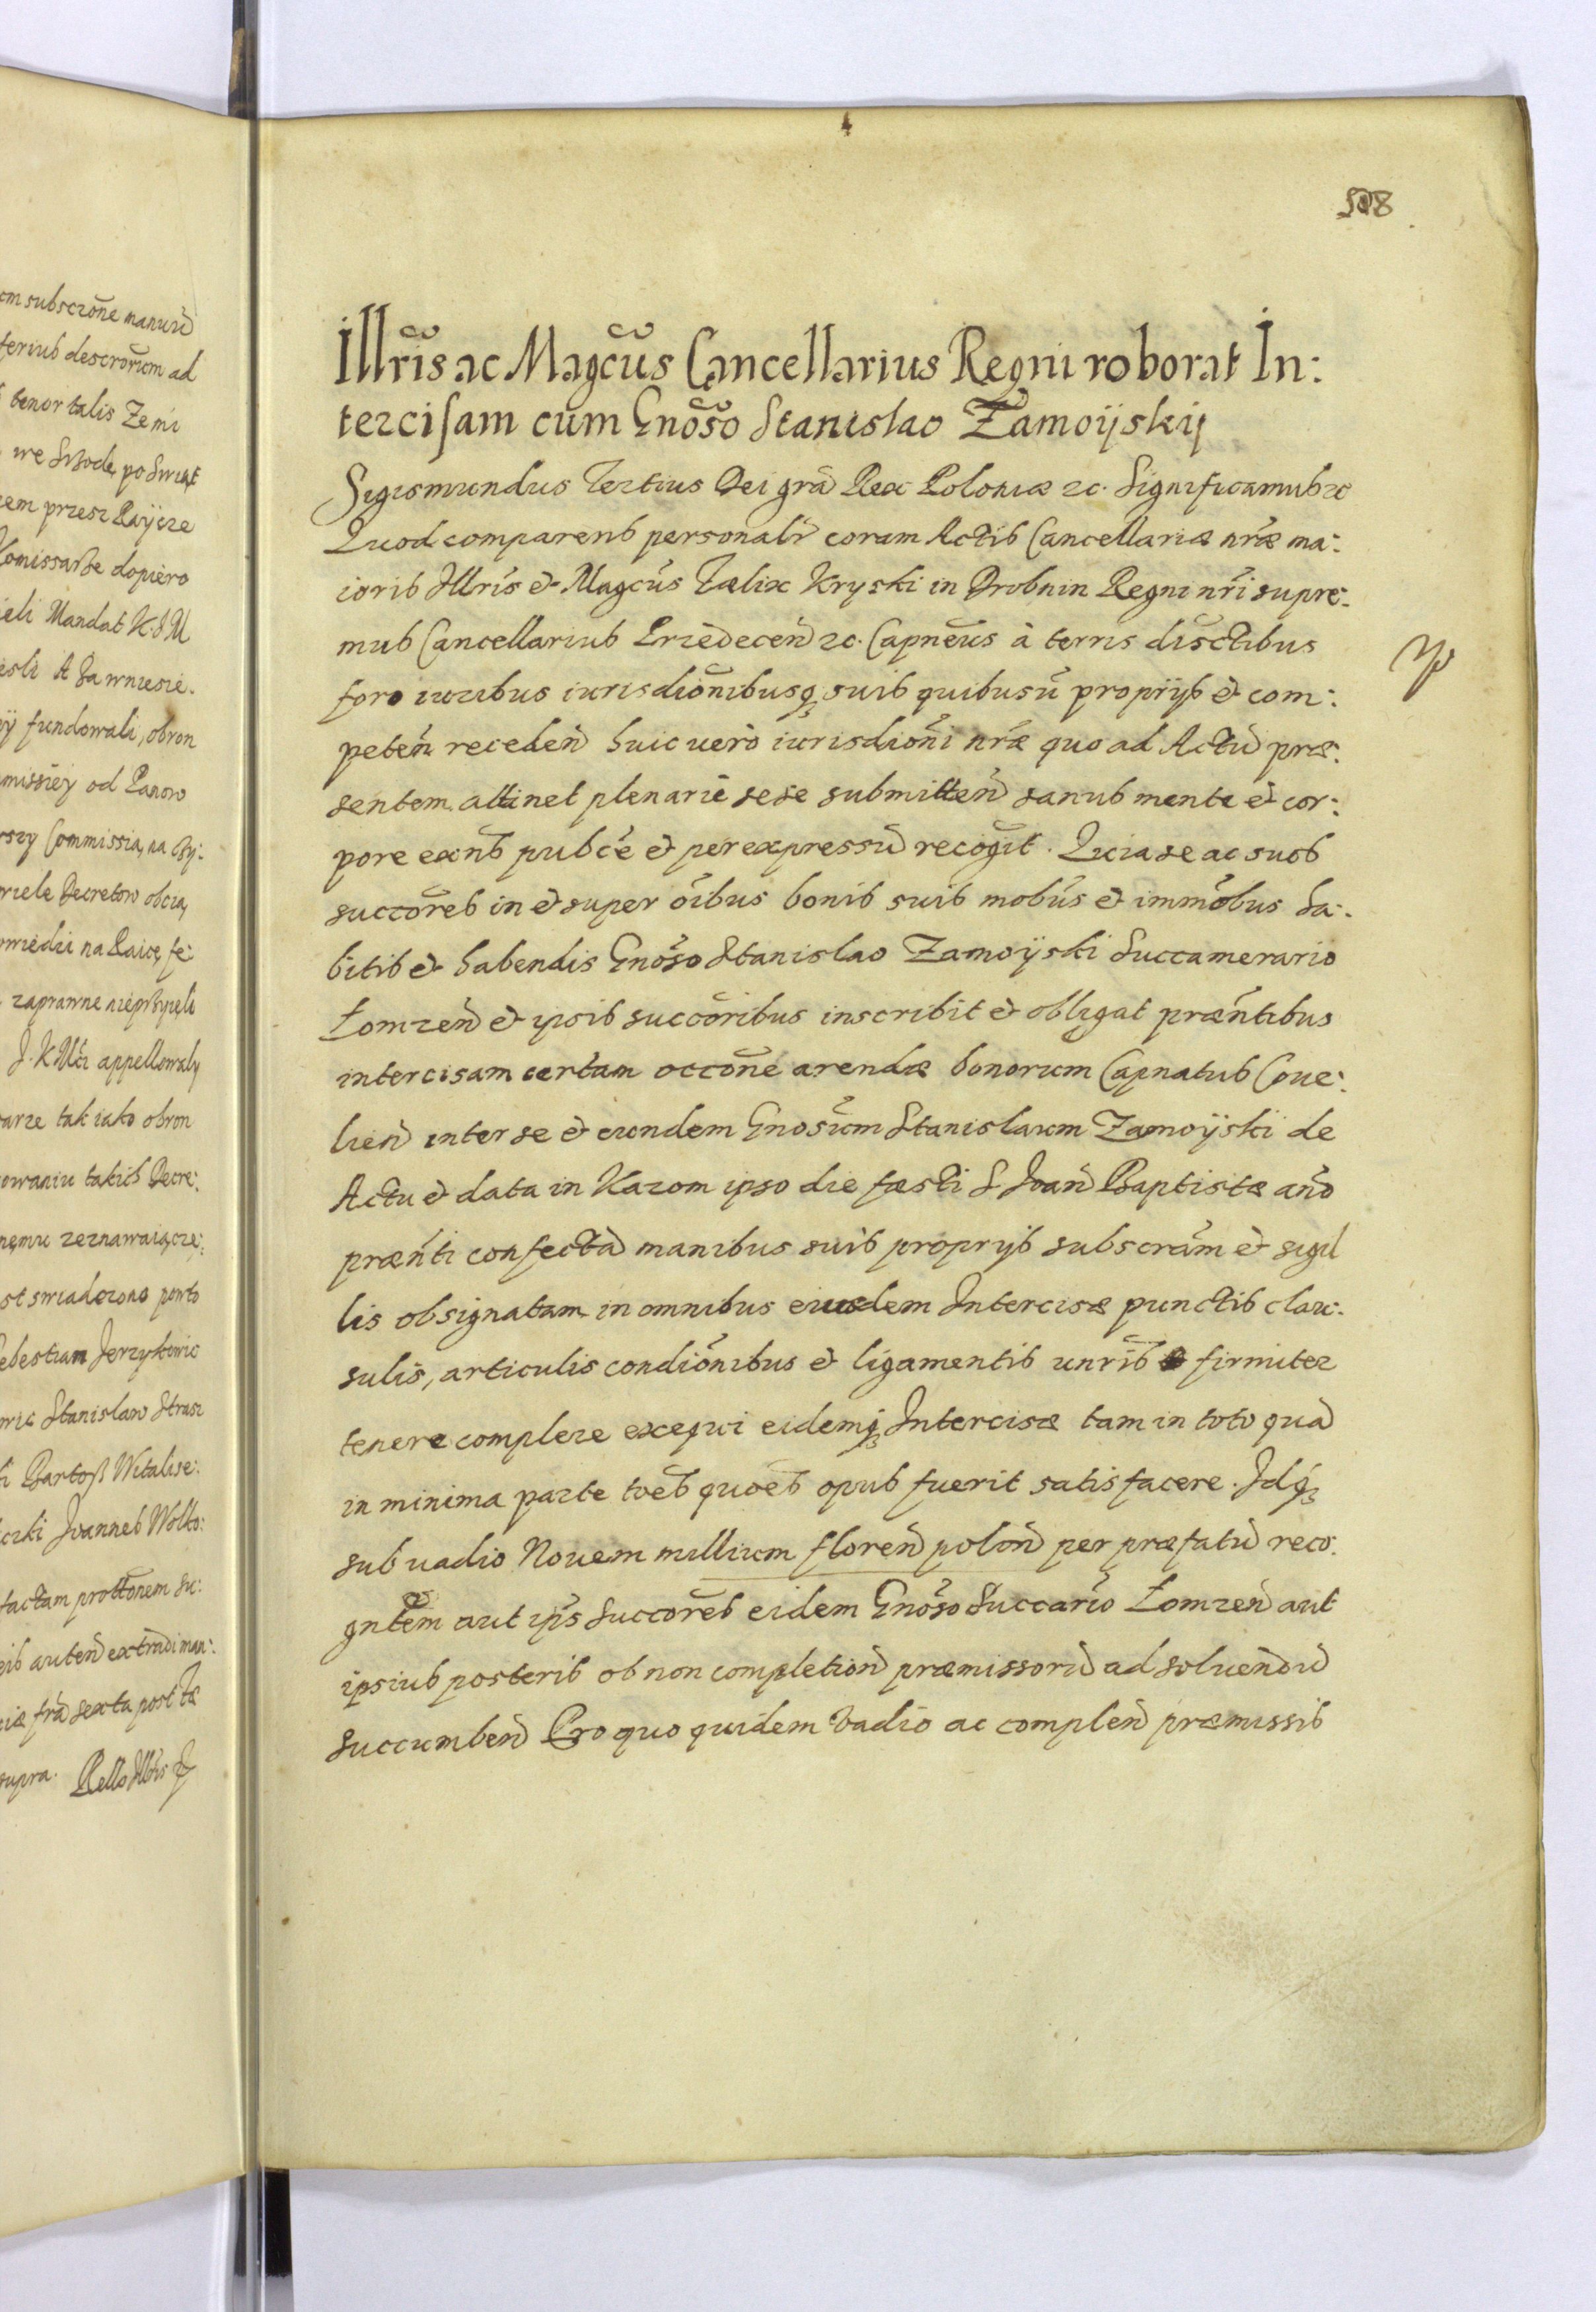 cm subscrōne manuū
terius descrorum ad
tenor talis Zemi
we Srzodę po Swięt
zem przesz Raycze
Komissarße dopiero
ieli Mandat K. J M
iesli A ża wniesie.
ÿ fundowali, obron
missiey od Panow
rszy Commissią na By:
rzele Decretow obcią
owiedzi na Raicę fe:
zaprawne nieprzyięli
J. K Mći appellowaly
arze tak iako obron
owaniu takich Decre:
nęmu zeznawaiącze:
st swiadczono perto
ebestian Jerzykowic
wic Stanislaw Strasz
i Bartoß Witalise:
czki Joannes Wolko:
factam prottōnem su:
eis auteñ extrādi man:
iæ fr̃a sexta post
supra. Rello Illris
508
Illr̃is ac Magc̃us Cancellarius Regni roborat In:
tercisam cum Gnõso Stanislao Zamoÿskij
Sigismundus Tertius Dei grã Rex Poloniæ zc. Significamus zc
Quod comparens personalr̃ coram Actis Cancellariæ nr̃æ ma:
ioris Illris et Magcũs Fælix Kryski in Drobnin Regni nr̃i supre:
mus Cancellarius Przedeceñ zc. Capnẽus à terris disctibus
foro iuribus iurisdiõnibusq suis quibusũ proprÿs et com:
peteñ recedeñ huic uerò iurisdiõni nr̃æ quo ad Actũ præ:
sentem attinet plenariè sese submitteñ sanus mente et cor:
pore exñs pubc̃e et per expressũ recõgit. Quia se ac suos
succõres in et super õibus bonis suis mobũs et immõbus ha:
bitis et habendis Gnõso Stanislao Zamoÿski Succamerario
Łomzeñ et ipsis succõribus inscribit et obligat præñtibus
intercisam certam occõne arendæ bonorum Capnatus Coue:
lieñ inter se et eundem Gnosũm Stanislaum Zamoÿski de
Actu et data in Kazom ipso die fæsti S Joañ Baptistæ año
præñti confectã manibus suis proprÿs subscrãm et sigil
lis obsignatam in omnibus eiusdem Intercisæ punctis clau:
sulis, articulis condiõnibus et ligamentis unr̃is firmiter
tenere complere exequi eidemq Intercisæ tam in toto quã
in minima parte toẽs quoẽs opus fuerit satisfacere. Idq
sub uadio Nouem millium floreñ poloñ per præfatũ reco:
gntẽm aut ip̃s Succorẽs eidem Gnõso Succar̃io Łomzeñ aut
ipsius posteris ob non completioñ præmissorũ ad soluẽndũ
succumbeñ Pro quo quidem Vadio ac compleñ præmissis